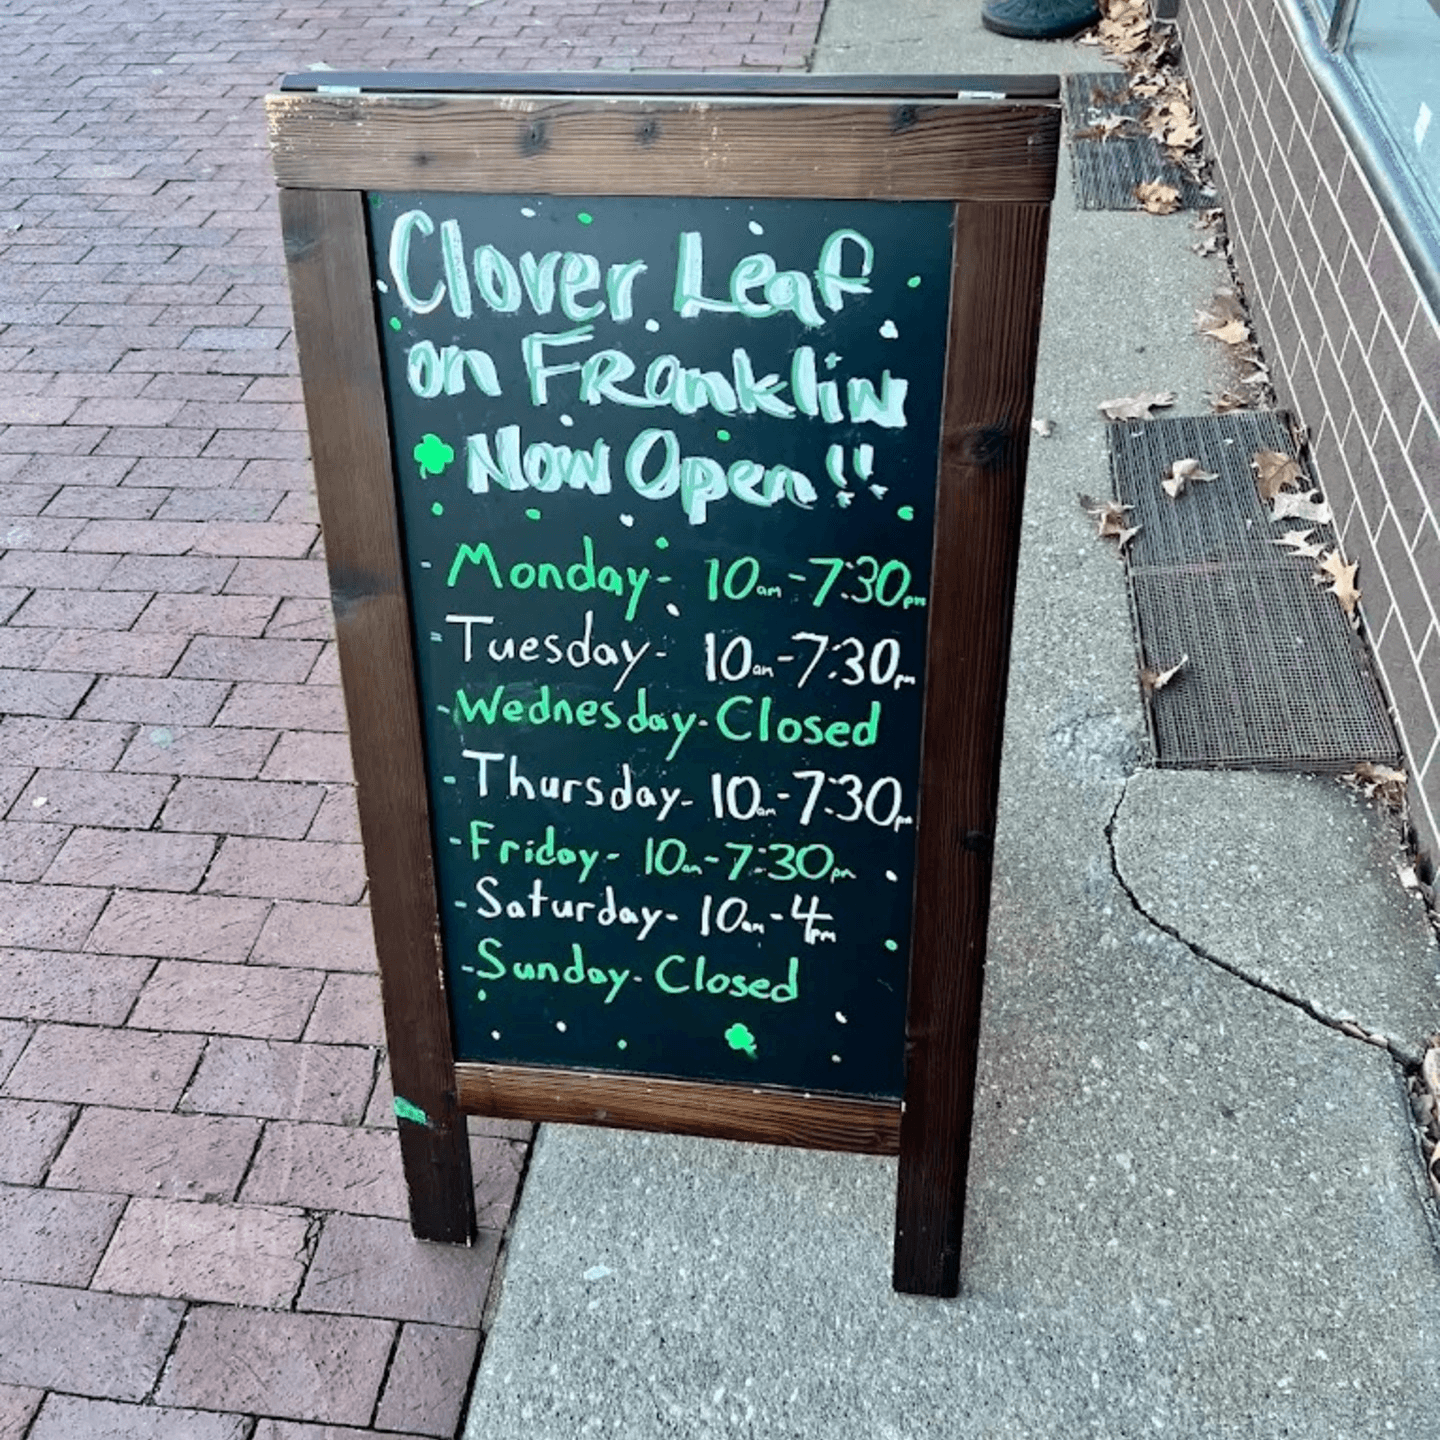 Clover Leaf
on Franklin
Now Open!!
- Monday- 10am-7:30pm
- Tuesday- 10am-7:30pm
- Wednesday-Closed
- Thursday- 10am-7:30pm
- Friday- 10am-7:30pm
- Saturday- 10am-4pm
- Sunday- Closed